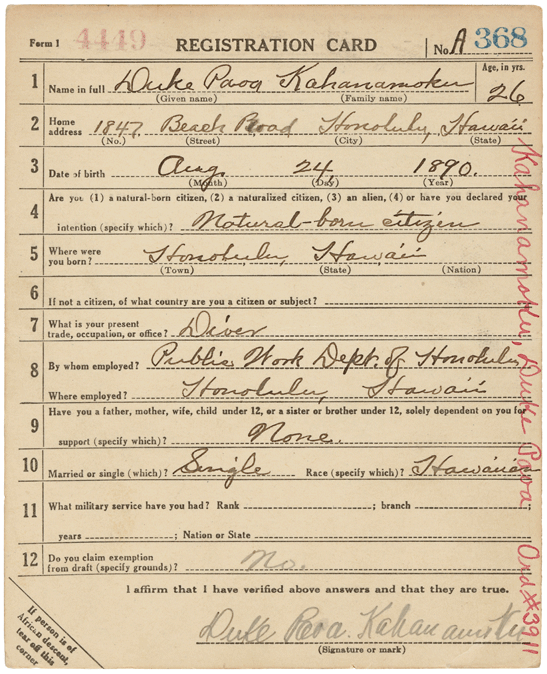 Form 1 4449 REGISTRATION CARD No. A 368
1 Name in full Duke Paoa Kahanamoku Age, in yrs. 26
(Given name) (Family name)
2 Home address 1847 Beach Road Honolulu, Hawaii
(No.) (Street) (City) (State)
3 Date of birth Aug. 24, 1890.
(Month) (Day) (Year)
4 Are you (1) a natural-born citizen, (2) a naturalized citizen, (3) an alien, (4) or have you declared your
intention (specify which)? Natural-born citizen
5 Where were you born? Honolulu, Hawaii
(Town) (State) (Nation)
6 If not a citizen, of what country are you a citizen or subject?
7 What is your present trade, occupation, or office? Diver
8 By whom employed? Public Work Dept. of Honolulu
Where employed? Honolulu, Hawaii
9 Have you a father, mother, wife, child under 12, or a sister or brother under 12, solely dependent on you for
support (specify which)? None.
10 Married or single (which)? Single Race (specify which)? Hawaiian
11 What military service have you had? Rank ; branch ;
years ; Nation or State
12 Do you claim exemption from draft (specify grounds)? No.
I affirm that I have verified above answers and that they are true.
Duke Paoa Kahanamoku
(Signature or mark)
If person is of
African descent,
tear off this
corner
Kahanamoku, Duke Paoa Ord #3911